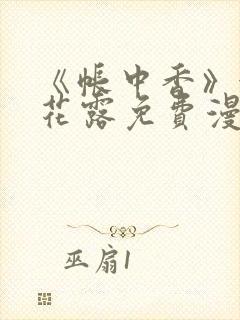 《帐中香》
花露免费漫
巫扇1